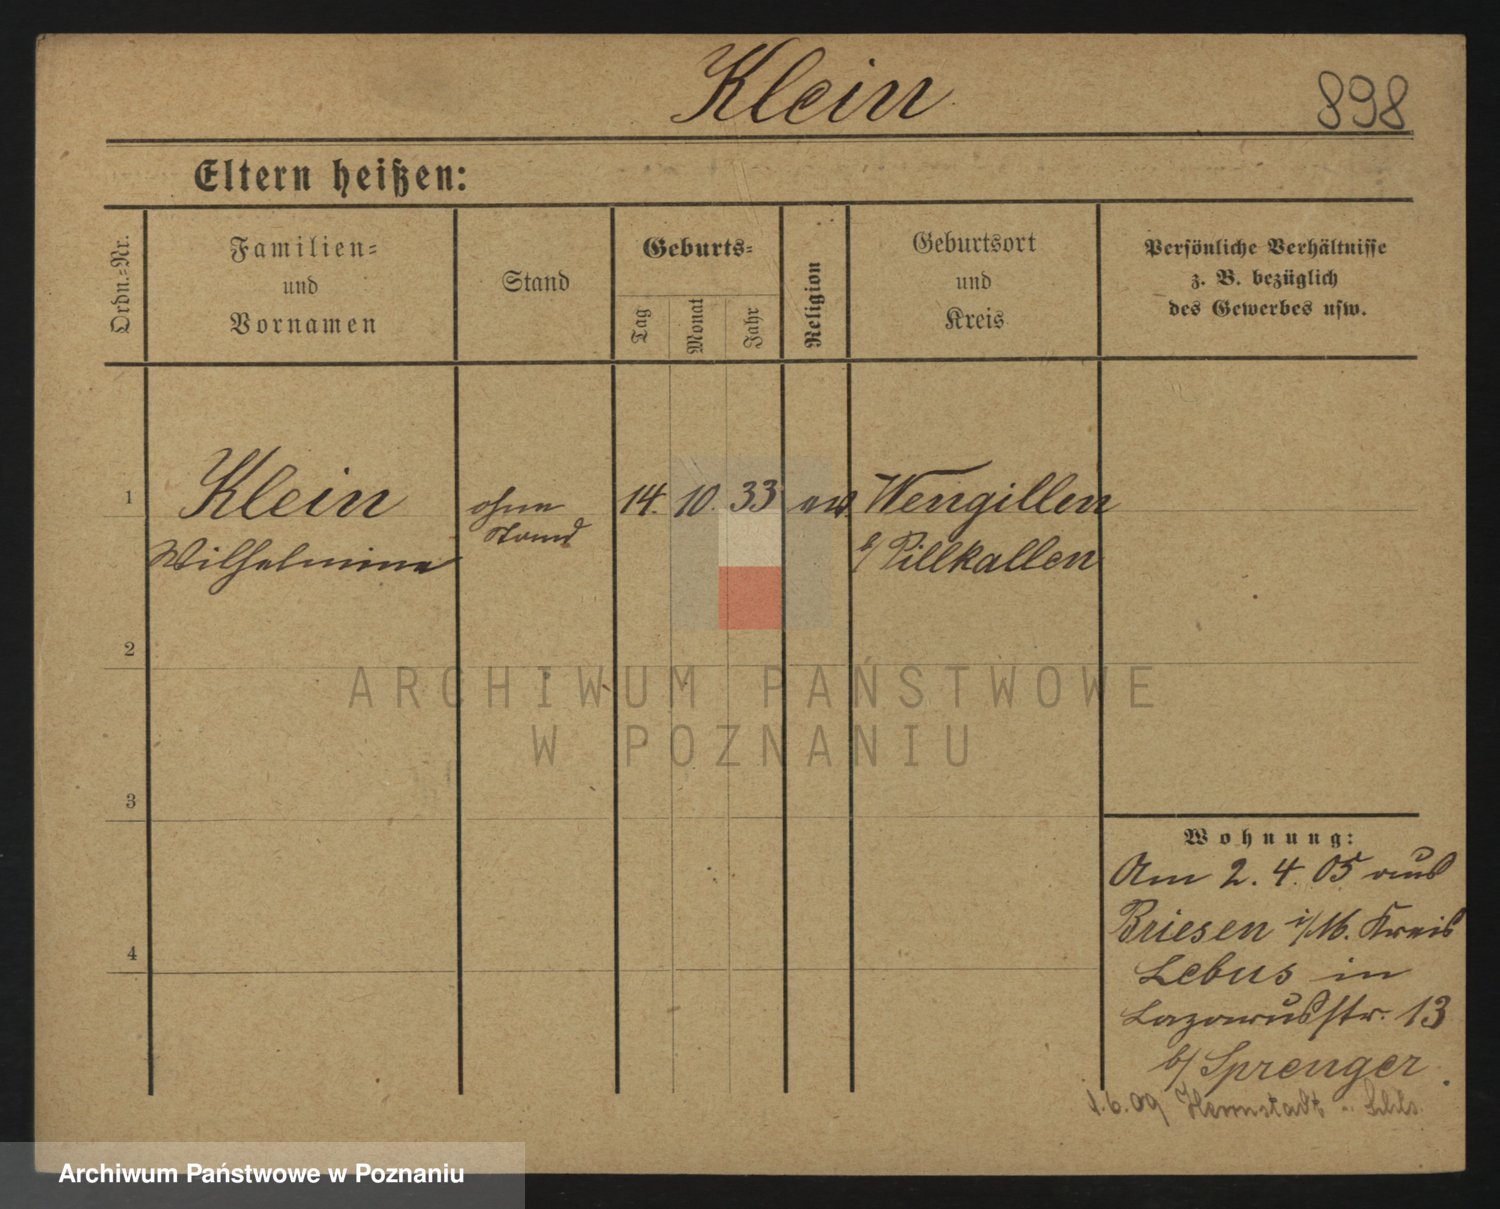 Klein
898
Eltern heißen:
Ordn.-Nr.
Familien-
und
Vornamen
Stand
Geburts-
Tag
Monat
Jahr
Religion
Geburtsort
und
Kreis
Persönliche Verhältnisse
z. B. bezüglich
des Gewerbes usw.
1
Klein
Wilhelmine
ohne
Stand
14. 10. 33
ev.
Wengillen
b/ Pillkallen
2
3
4
ARCHIWUM PAŃSTWOWE
W POZNANIU
Wohnung:
Am 2. 4. 05 aus
Briesen i/M. Kreis
Lebus in
Lazarusstr. 13
b/ Sprenger
1.6.09 Herrnstadt
Archiwum Państwowe w Poznaniu